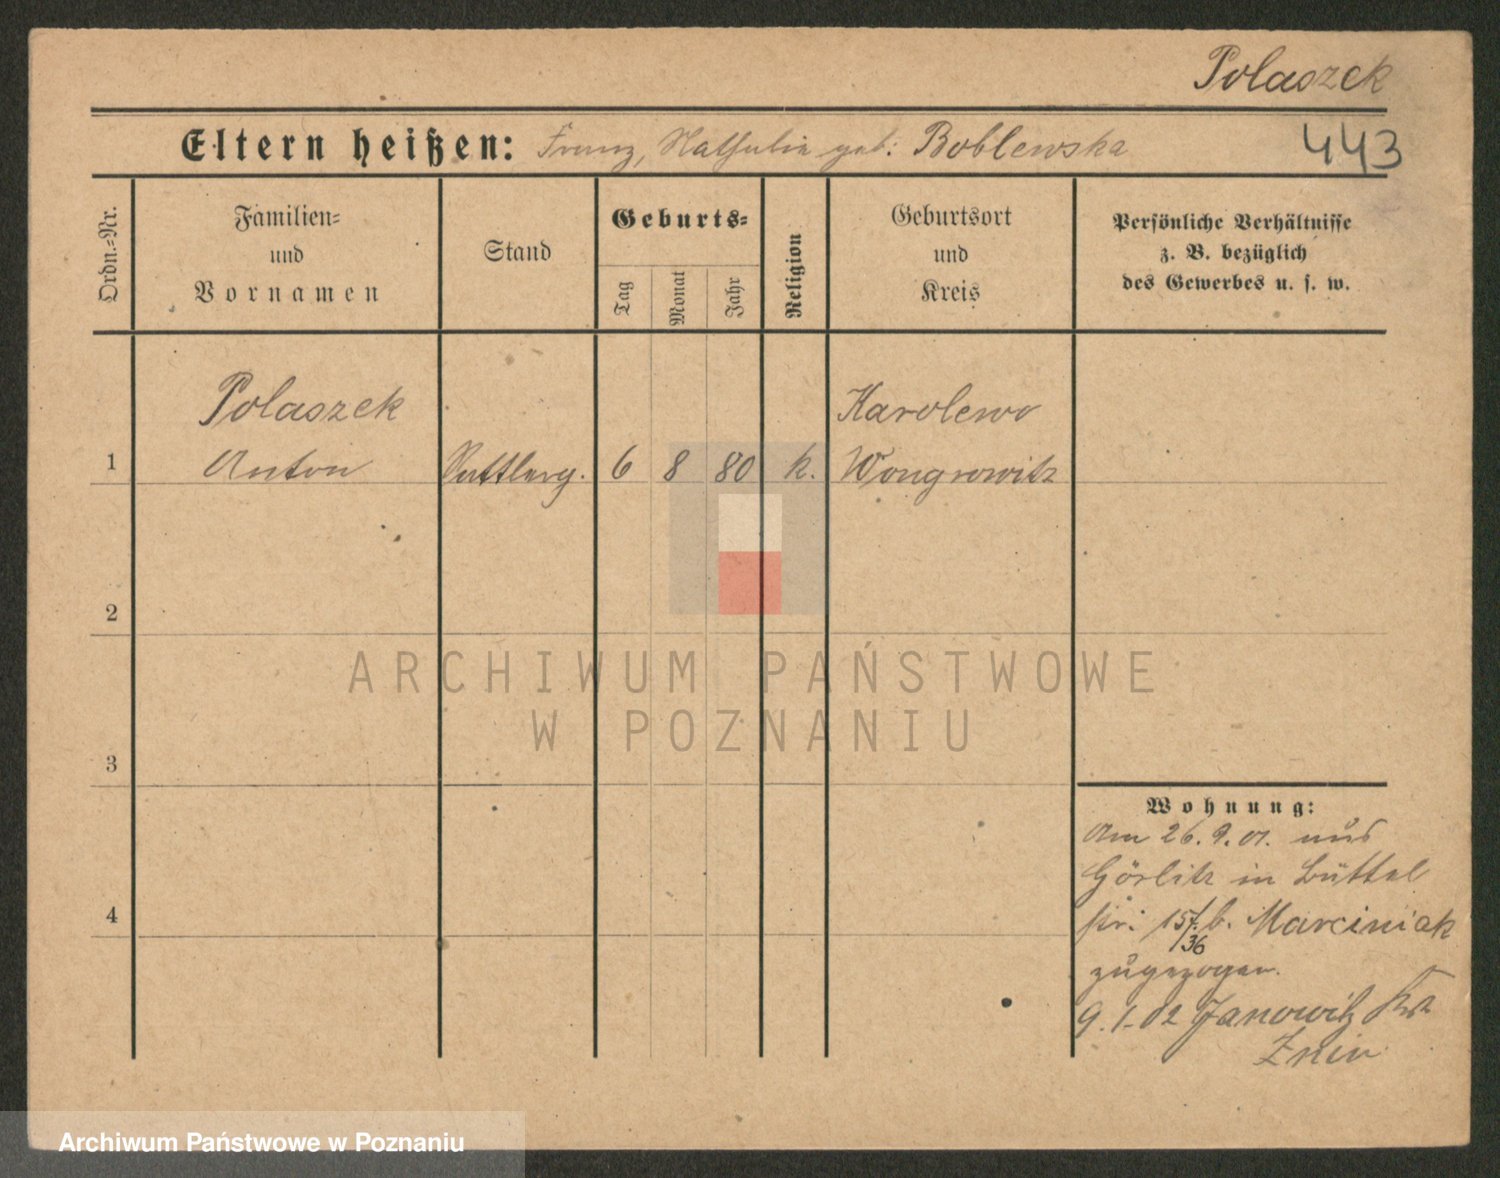 Polaszek
Eltern heißen: Franz, Nathalie geb: Boblewska
443
Ordn.=Nr.
Familien=
und
Vornamen
Stand
Geburts=
Tag
Monat
Jahr
Religion
Geburtsort
und
Kreis
Persönliche Verhältnisse
z. B. bezüglich
des Gewerbes u. s. w.
Polaszek
Karolewo
1
Anton
Sattlerg.
6
8
80
k.
Wongrowitz
2
3
4
ARCHIWUM PAŃSTWOWE
W POZNANIU
Wohnung:
Am 26.9.01. aus
Görlitz in Büttel
str. 15 b. Marciniak
36
zugezogen.
9.1.02 Janowitz Krs
Znin
Archiwum Państwowe w Poznaniu